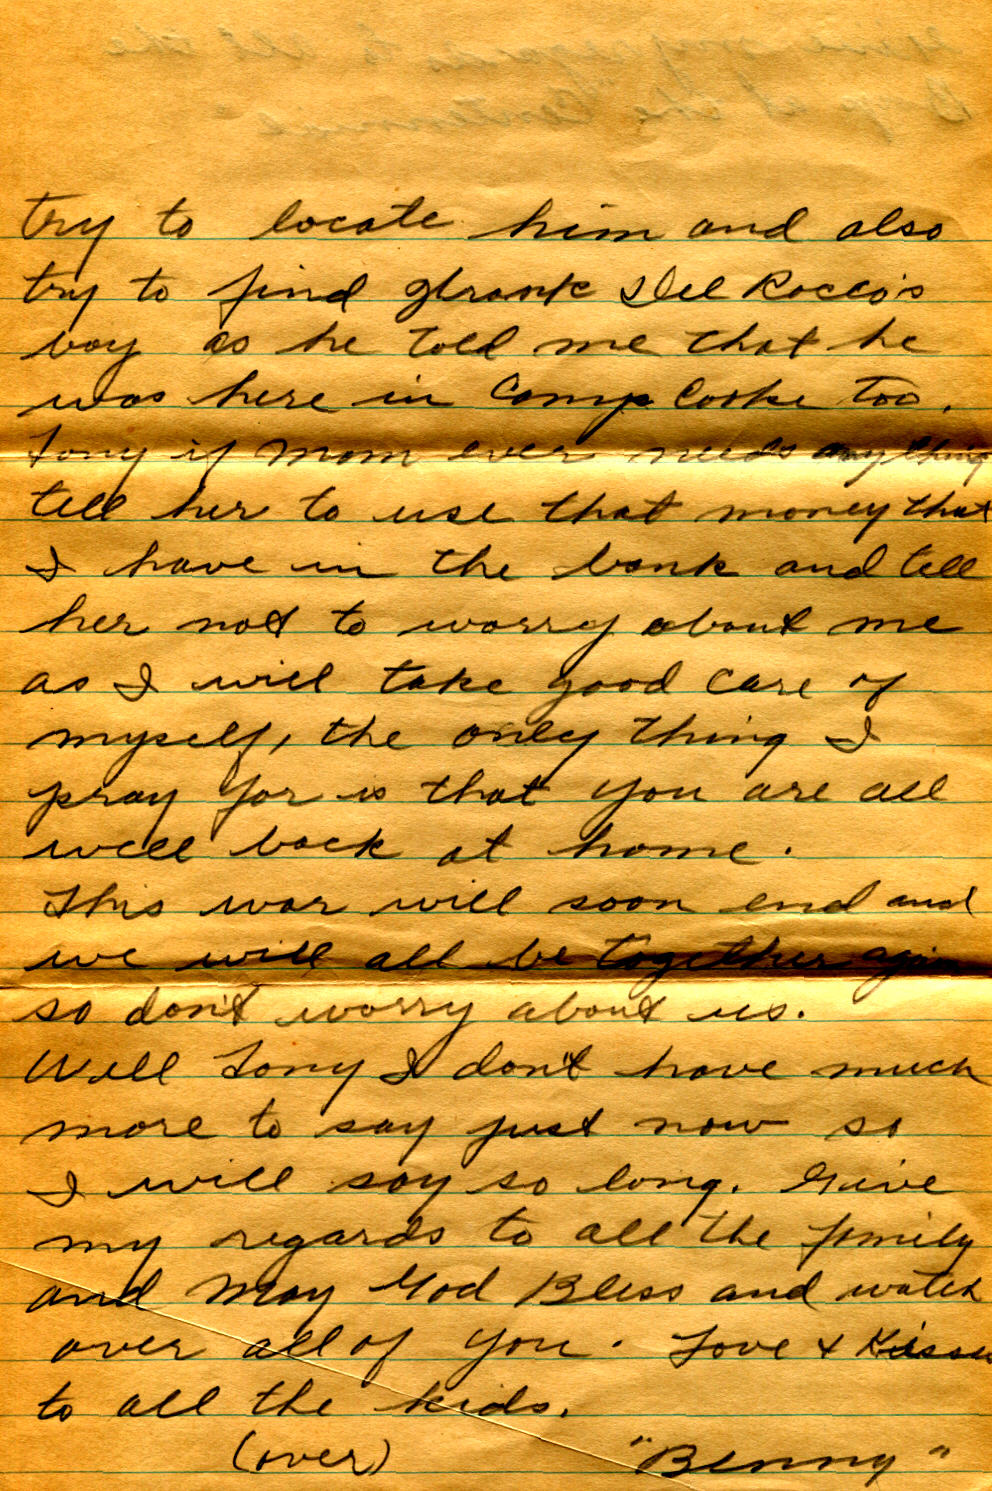 try to locate him and also
try to find Frank Del Rocco's
boy as he told me that he
was here in Camp Cooke too.
Tony if Mom ever needs anything
tell her to use that money that
I have in the bank and tell
her not to worry about me
as I will take good care of
myself, the only thing I
pray for is that you are all
well back at home.
This war will soon end and
we will all be together again
so don't worry about us.
Well Tony I don't have much
more to say just now so
I will say so long. Give
my regards to all the family
and May God Bless and watch
over all of you. Love & Kisses
to all the kids.
(over) "Benny"